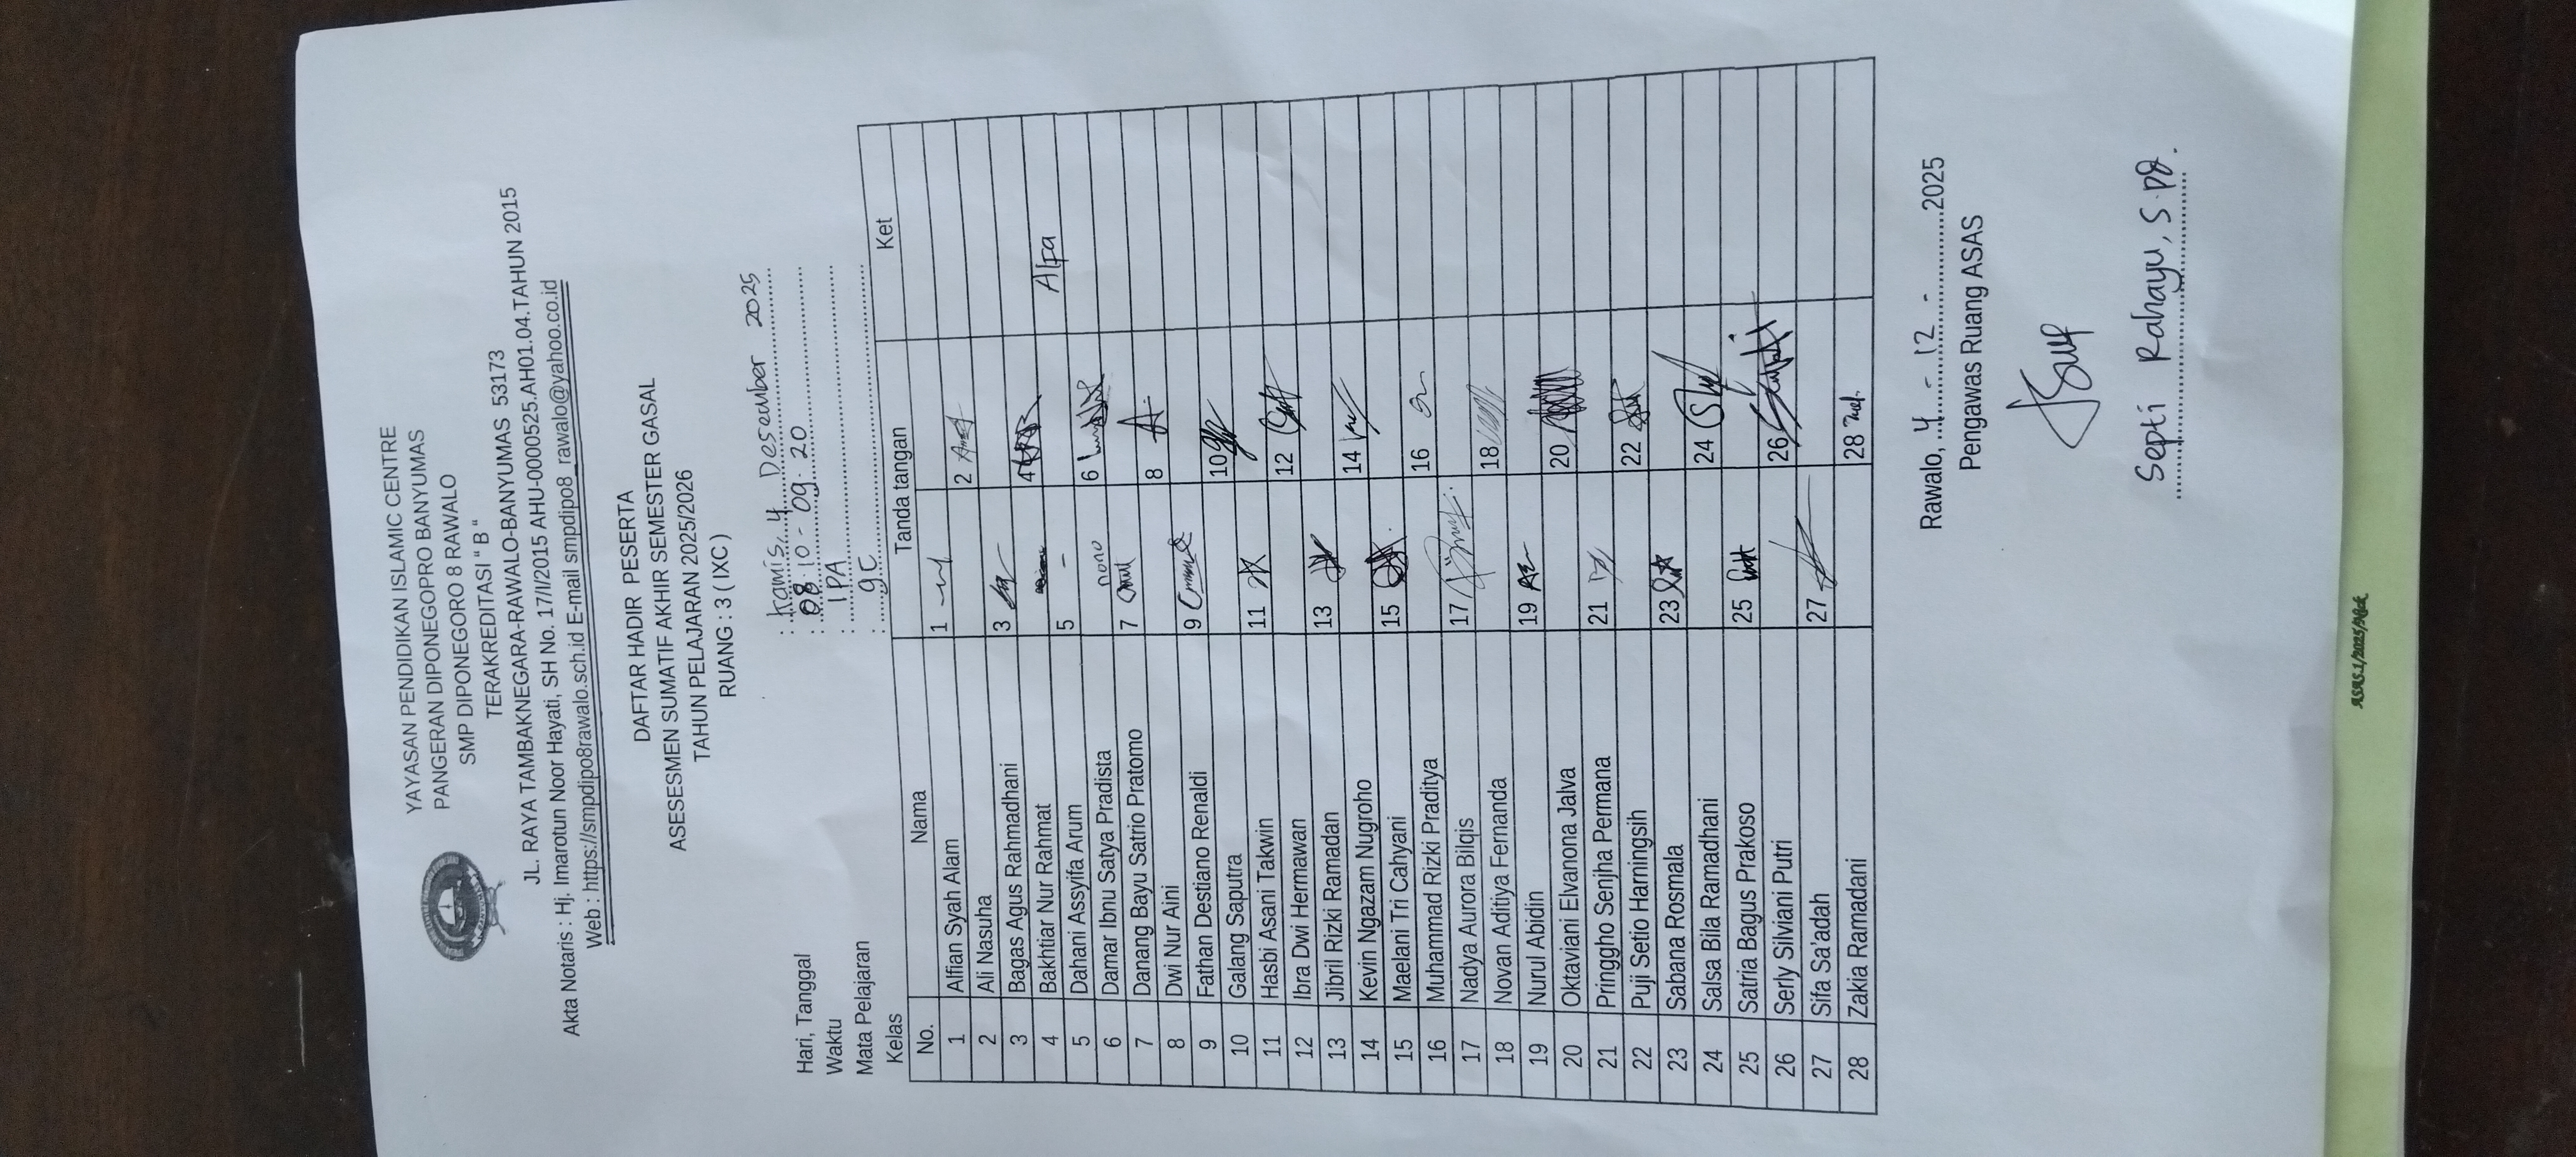 YAYASAN PENDIDIKAN ISLAMIC CENTRE
PANGERAN DIPONEGOPRO BANYUMAS
SMP DIPONEGORO 8 RAWALO
TERAKREDITASI “ B “
JL. RAYA TAMBAKNEGARA-RAWALO-BANYUMAS 53173
Akta Notaris : Hj. Imarotun Noor Hayati, SH No. 17/I/2015 AHU-0000525.AH01.04.TAHUN 2015
Web : https://smpdipo8rawalo.sch.id E-mail smpdipo8_rawalo@yahoo.co.id
DAFTAR HADIR PESERTA
ASESESMEN SUMATIF AKHIR SEMESTER GASAL
TAHUN PELAJARAN 2025/2026
RUANG : 3 ( IXC )
Hari, Tanggal : Kamis, 4 Desember 2025
Waktu : 08 10 - 09. 20
Mata Pelajaran : IPA
Kelas : 9C
No. Nama Tanda tangan Ket
1 Alfian Syah Alam 1
2 Ali Nasuha 2
3 Bagas Agus Rahmadhani 3
4 Bakhtiar Nur Rahmat 4
5 Dahani Assyifa Arum 5 - Alfa
6 Damar Ibnu Satya Pradista 6
7 Danang Bayu Satrio Pratomo 7 nono
8 Dwi Nur Aini 8
9 Fathan Destiano Renaldi 9
10 Galang Saputra 10
11 Hasbi Asani Takwin 11
12 Ibra Dwi Hermawan 12
13 Jibril Rizki Ramadan 13
14 Kevin Ngazam Nugroho 14
15 Maelani Tri Cahyani 15
16 Muhammad Rizki Praditya 16
17 Nadya Aurora Bilqis 17
18 Novan Aditiya Fernanda 18
19 Nurul Abidin 19
20 Oktaviani Elvanona Jalva 20
21 Pringgho Senjha Permana 21
22 Puji Setio Harningsih 22
23 Sabana Rosmala 23
24 Salsa Bila Ramadhani 24
25 Satria Bagus Prakoso 25
26 Serly Silviani Putri 26
27 Sifa Sa'adah 27
28 Zakia Ramadani 28
Rawalo, 4 - 12 - 2025
Pengawas Ruang ASAS
Septi Rahayu, S.Pd.